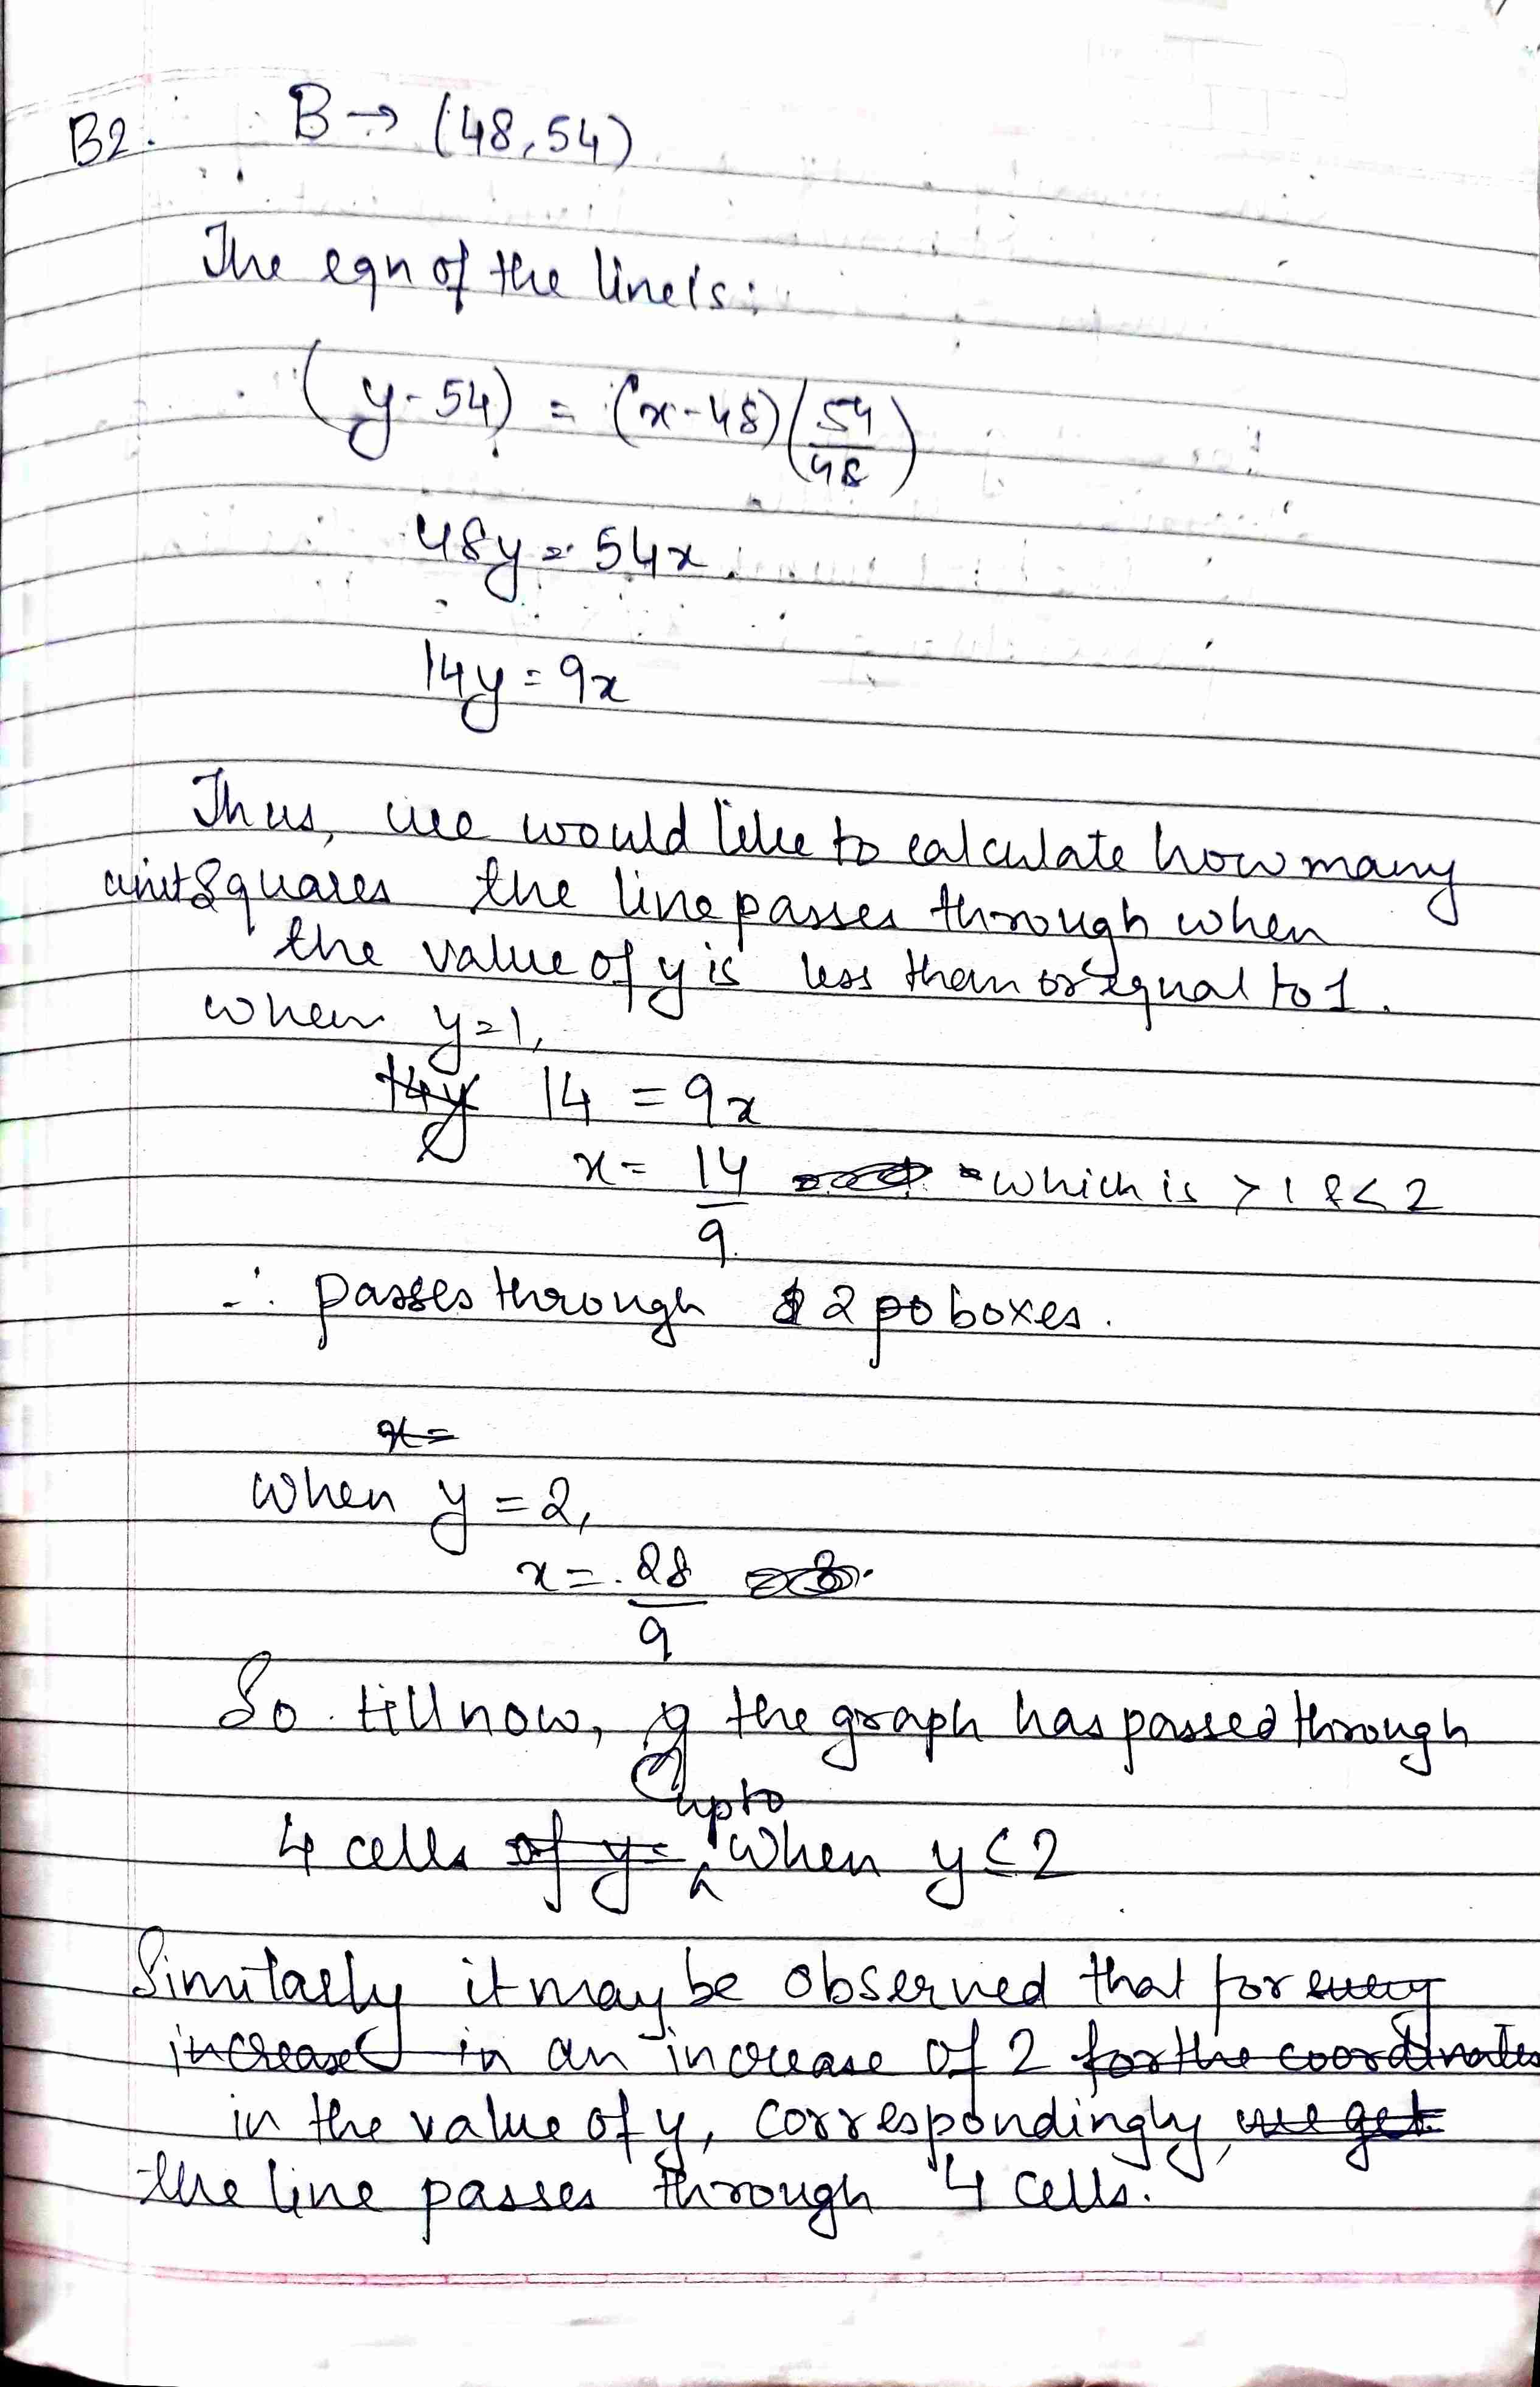 B2. B → (48,54)
The eqn of the line is:
(y-54) = (x-48)(54/48)
48y = 54x
14y = 9x
Thus, we would like to calculate how many
unit squares the line passes through when
the value of y is less than or equal to 1.
when y=1,
14y 14 = 9x
x = 14/9 which is >1 & <2
∴ passes through 2 po boxes.
x=
when y = 2,
x = 28/9
So till now, the graph has passed through
upto
4 cells of y= ^ when y ≤ 2
Similarly it may be observed that for every
increase in an increase of 2 for the coordinates
in the value of y, correspondingly, we get
the line passes through 4 cells.